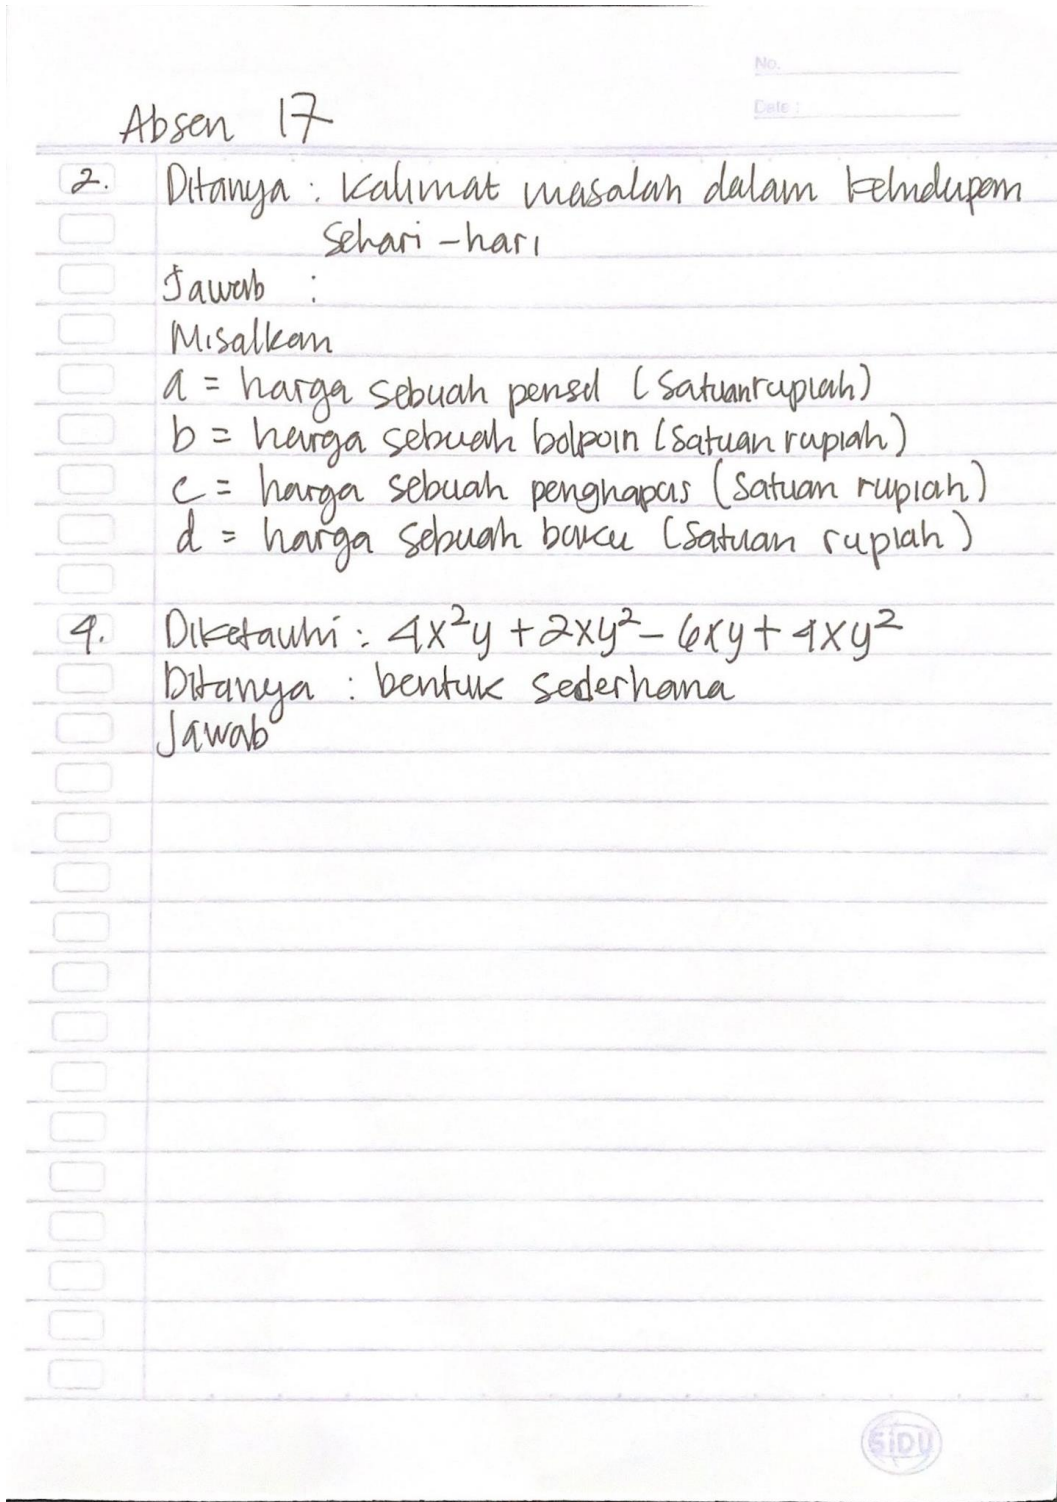 No.
Date :
Absen 17
2. Ditanya : Kalimat masalah dalam kehidupan
sehari-hari
Jawab :
Misalkan
a = harga sebuah pensil (satuan rupiah)
b = harga sebuah bolpoin (satuan rupiah)
c = harga sebuah penghapus (satuan rupiah)
d = harga sebuah buku (satuan rupiah)
4. Diketauhi : 4x²y + 2xy² - 6xy + 4xy²
Ditanya : bentuk sederhana
Jawab
SiDU